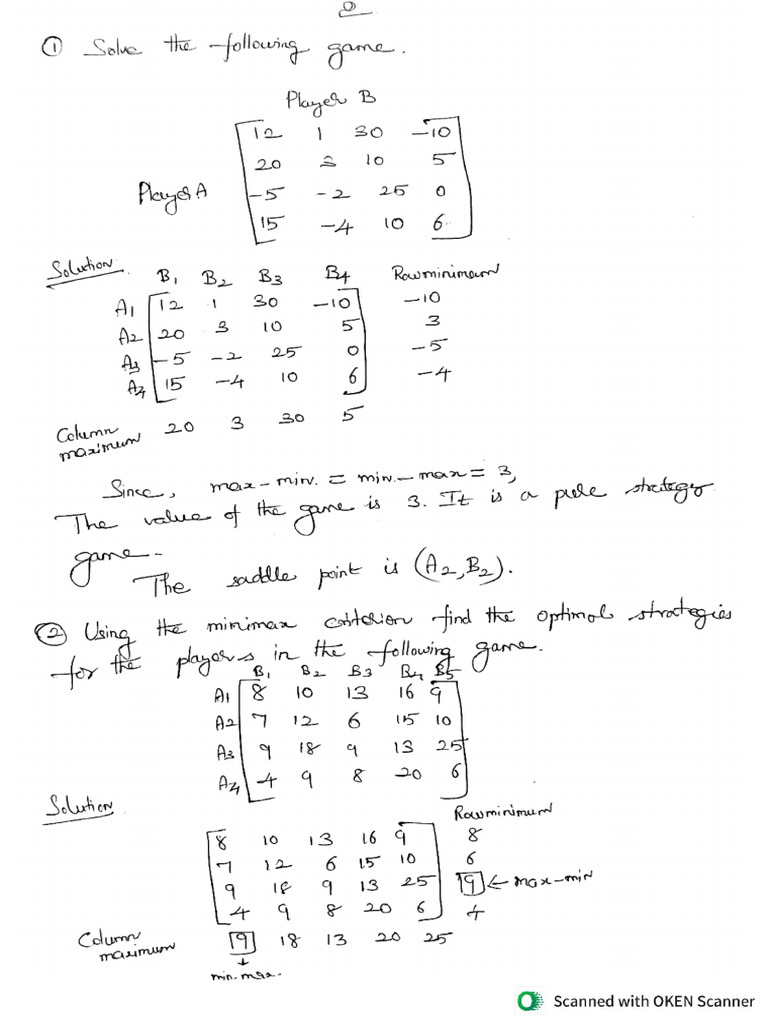 ① Solve the following game.
Player B
12 1 30 -10
20 3 10 5
Player A
-5 -2 25 0
15 -4 10 6
Solution
B1 B2 B3 B4 Row minimum
A1 12 1 30 -10 -10
A2 20 3 10 5 3
A3 -5 -2 25 0 -5
A4 15 -4 10 6 -4
Column maximum 20 3 30 5
Since, max-min. = min.-max = 3,
The value of the game is 3. It is a pure strategy
game.
The saddle point is (A2, B2).
② Using the minimax criterion find the optimal strategies
for the players in the following game.
B1 B2 B3 B4 B5
A1 8 10 13 16 9
A2 7 12 6 15 10
A3 9 18 9 13 25
A4 4 9 8 20 6
Solution
Row minimum
8 10 13 16 9 8
7 12 6 15 10 6
9 18 9 13 25 9 ← max-min
4 9 8 20 6 4
Column maximum 9 18 13 20 25
↓
min. max.
Scanned with OKEN Scanner